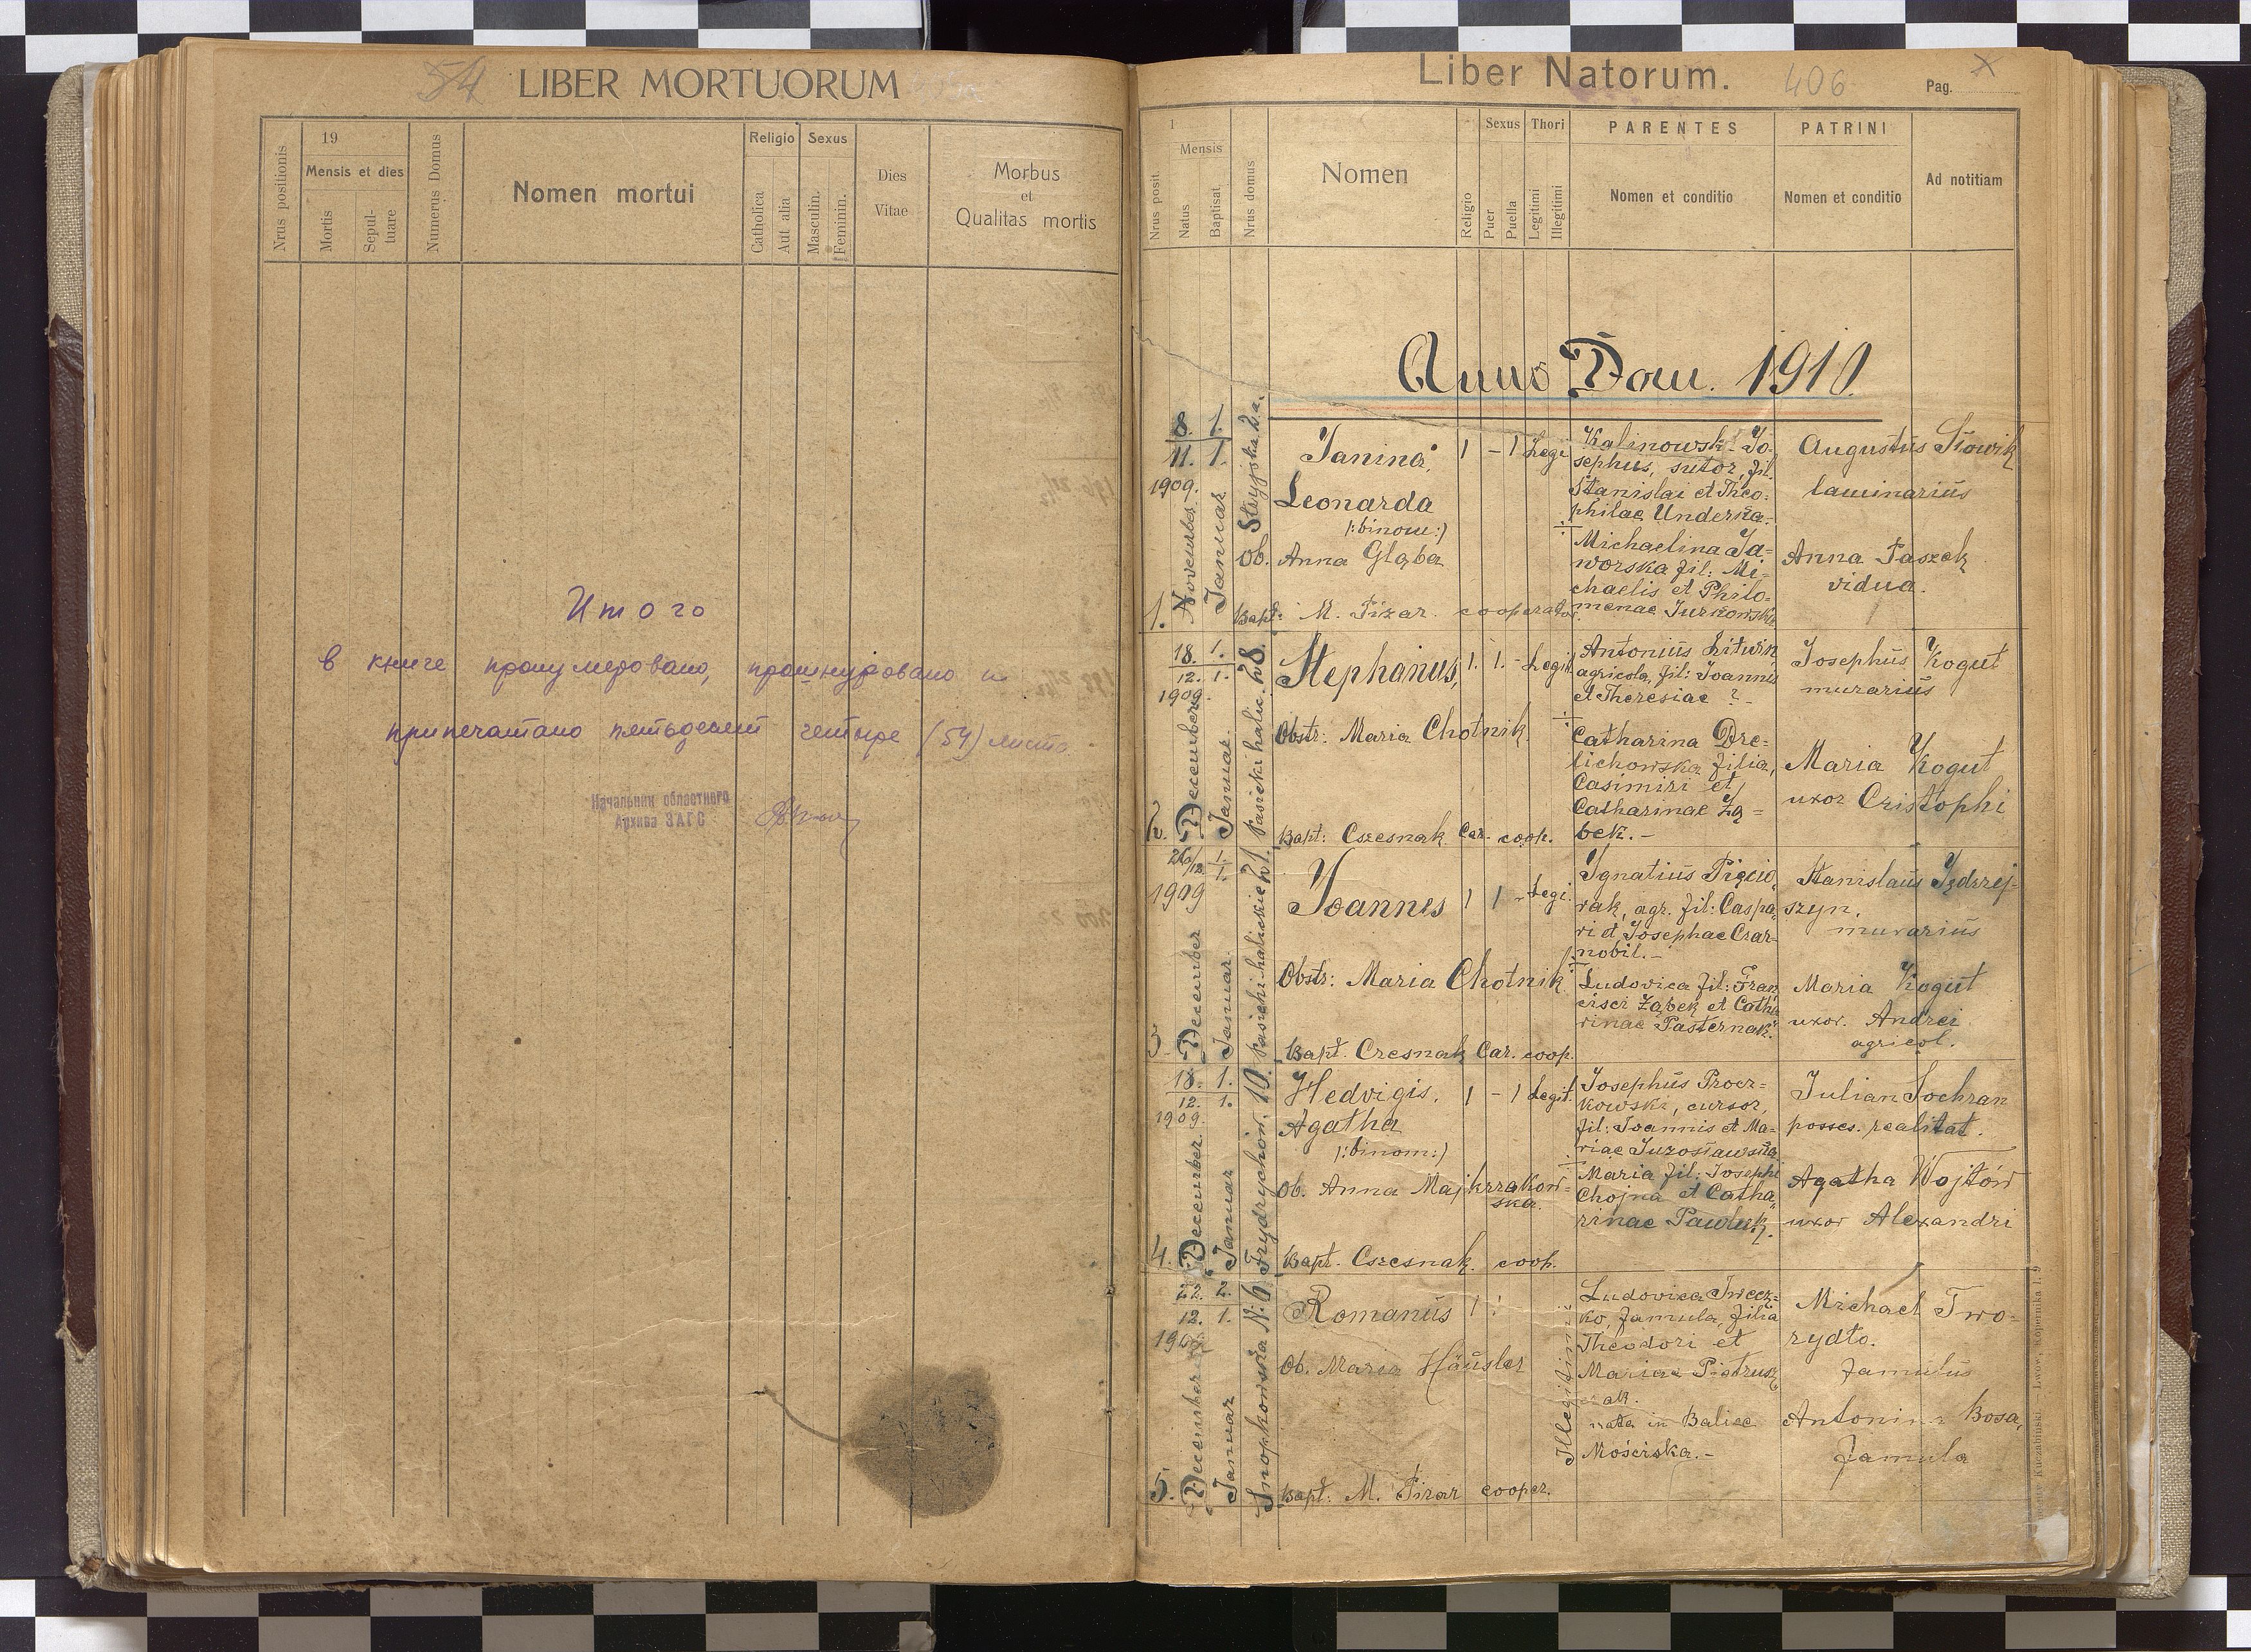 54 LIBER MORTUORUM
Nrus positionis
19
Mensis et dies
Mortis
Sepul-
tuare
Numerus Domus
Nomen mortui
Religio
Catholica
Aut alia
Sexus
Masculin.
Feminin.
Dies
Vitae
Morbus
et
Qualitas mortis
Итого
в книге пронумеровано, прошнуровано и
припечатано пятьдесят четыре (54) листа
Начальник областного
Архива ЗАГС
Liber Natorum. 406 Pag. X
Nrus posit.
1
Mensis
Natus
Baptisat.
Nrus domus
Nomen
Religio
Sexus
Puer
Puella
Thori
Legitimi
Illegitimi
PARENTES
Nomen et conditio
PATRINI
Nomen et conditio
Ad notitiam
Anno Dom. 1910.
1.
8. 1.
11. 1.
1909.
Novembes
Januar
Stryjska
Janina,
Leonarda
/:binom:/
Ob. Anna Głąba
Bapt: M. Pizar. cooperator.
1 - 1 Legi
Kalinowski Jo-
sephus, sutor, fil.
Stanislai et Theo-
philae Underka.
Michaelina Ja=
worska fil: Mi-
chaelis et Philo-
menae Jurkowska
Augustus Słowik
laminarius
Anna Paszek
vidua.
2.
18. 1.
12. 1.
1909.
December
Januar.
Pasieki halic. 28.
Stephanus,
1. 1. - Legit
Obstr: Maria Chotnik.
Bapt: Czesnak Car. coop.
Antonius Litwin
agricola, fil: Joannis
et Theresiae ? -
Catharina Dre=
lichowska filia,
Casimiri et
Catharinae Zą=
bek. -
Josephus Kogut
murarius
Maria Kogut
uxor Cristophi
3.
26/12 1.
1.
1909
December
Januar.
Pasieki halickie 21.
Joannes
1 1 - Legi.
Obstr: Maria Chotnik.
Bapt. Czesnak Car. coop.
Ignatius Pięcio,
rak, agr. fil: Caspa,
ri et Josephae Czar-
nobil. -
Ludovica fil: Fran
cisci Ząbek et Catha
rinae Pasternak.
Stanislaus Jędrzej-
szyn,
murarius
Maria Kogut
uxor. Andrei
agricol.
4.
18. 1.
12. 1.
1909.
December
Januar
Frydrychów. 10.
Hedvigis.
Agatha
/:binom:/
1 - 1 Legit.
Ob. Anna Majkrzakow=
ska.
Bapt. Czesnak. coop.
Josephus Procz=
kowski, cursor,
fil: Joannis et Ma-
riae Jurosławska
Maria fil: Josephi
Chojna et Catha
rinae Pawluk.
Julian Sochran
posses. realitat.
Agatha Wojtów
uxor Alexandri
5.
22. 2.
12. 1.
December
Januar
Snopkowska N: 6.
Romanus
Ob. Maria Häusler
Bapt: M. Pizar cooper.
Illegitimi
Ludovica Tweez=
ko, famula, filia
Theodori et
Mariae Pietrusz
czak.
nata in Balice
Mościska. -
Michael Two=
rydło.
famulus
Antonina Bosa,
famula
Kuczabiński. — Lwów, Kopernika l. 9